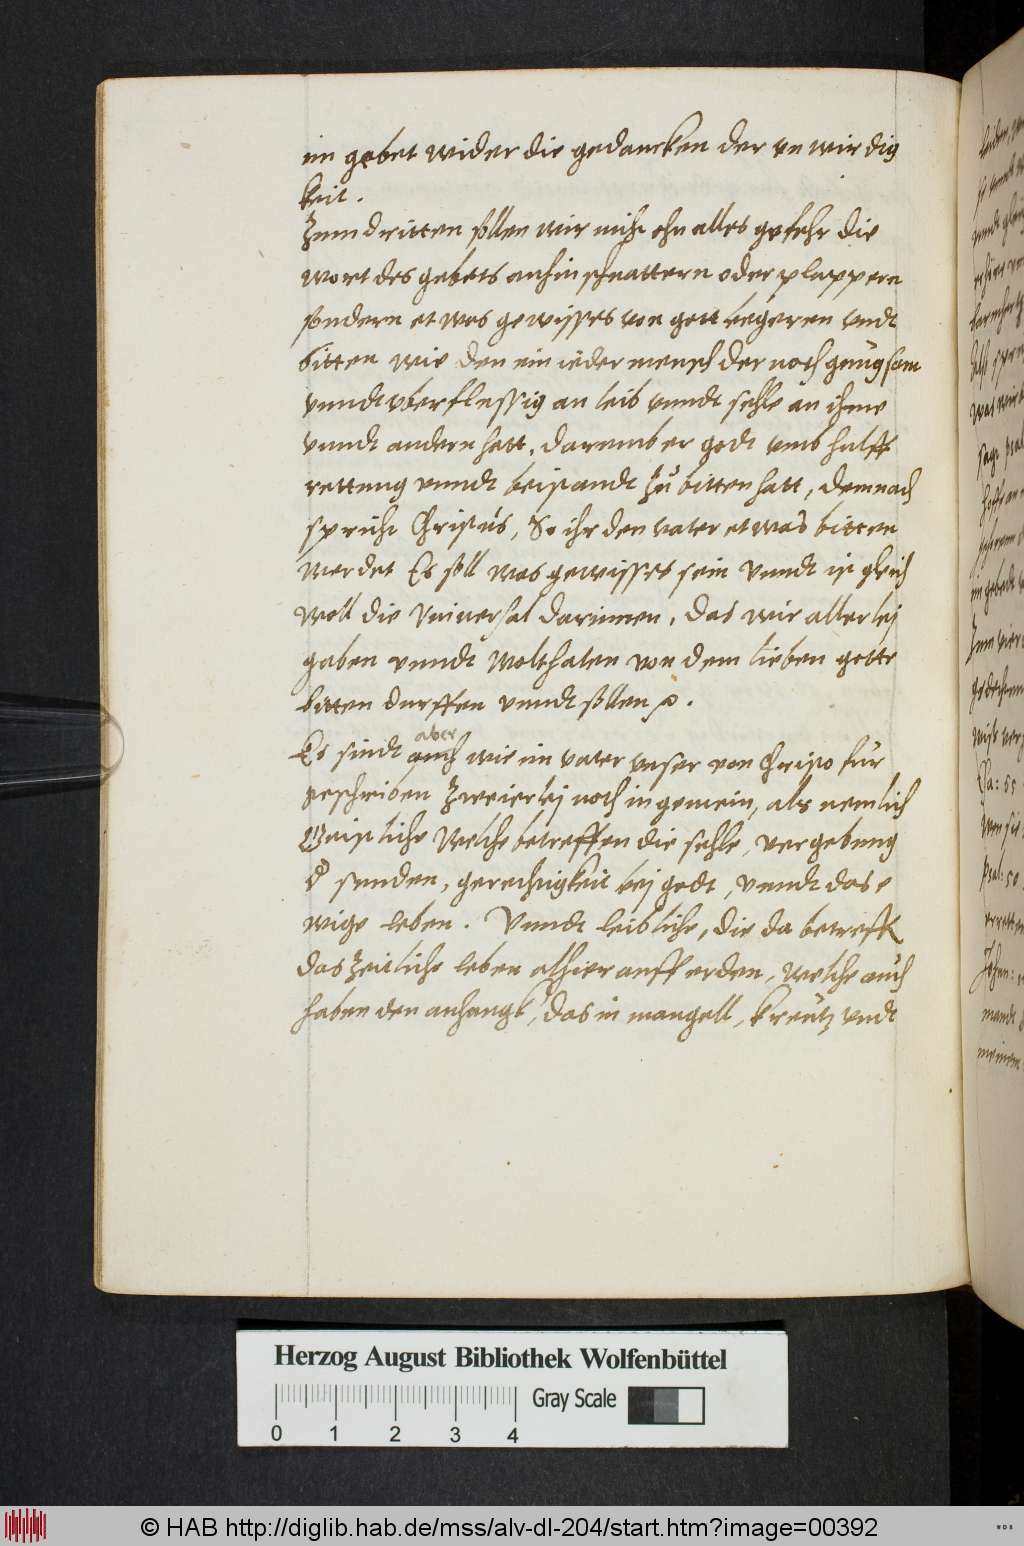 im gebet wider die gedancken der vnwirdig
keit.
Zum dritten sollen wir nicht ohn alles gefehr die
wort des gebets anhin schnattern oder plappern
sondern etwas gewisses von gott begeren vndt
bitten wie den ein ieder mensch der noch genugsam
vnndt vberflussig an leib vnndt sehle an ihme
vnndt andern hatt, darumb er godt vmb hulff
rettung vnndt beistandt zu bitten hatt, demnach
spricht Christus, So ihr den vater etwas bitten
werdet Es soll was gewisses sein vnndt ist gleich
woll die vniversal darinnen, das wir allerlej
gaben vnndt wolthaten von dem lieben gotte
bitten durffen vnndt sollen.
Es sindt aber auch wie im vater vnser von Christo fur
geschriben zweierlej noth in gemein, als nemlich
Geistliche welche betreffen die sehle, vergebung
d sunden, gerechtigkeit bej godt, vnndt das e
wige leben. Vnndt leibliche, die da betreffen
das zeitliche leben alhier auff erden, welche auch
haben den anhangk, das in mangell, kreutz vndt
Herzog August Bibliothek Wolfenbüttel
Gray Scale
0 1 2 3 4
© HAB http://diglib.hab.de/mss/alv-dl-204/start.htm?image=00392